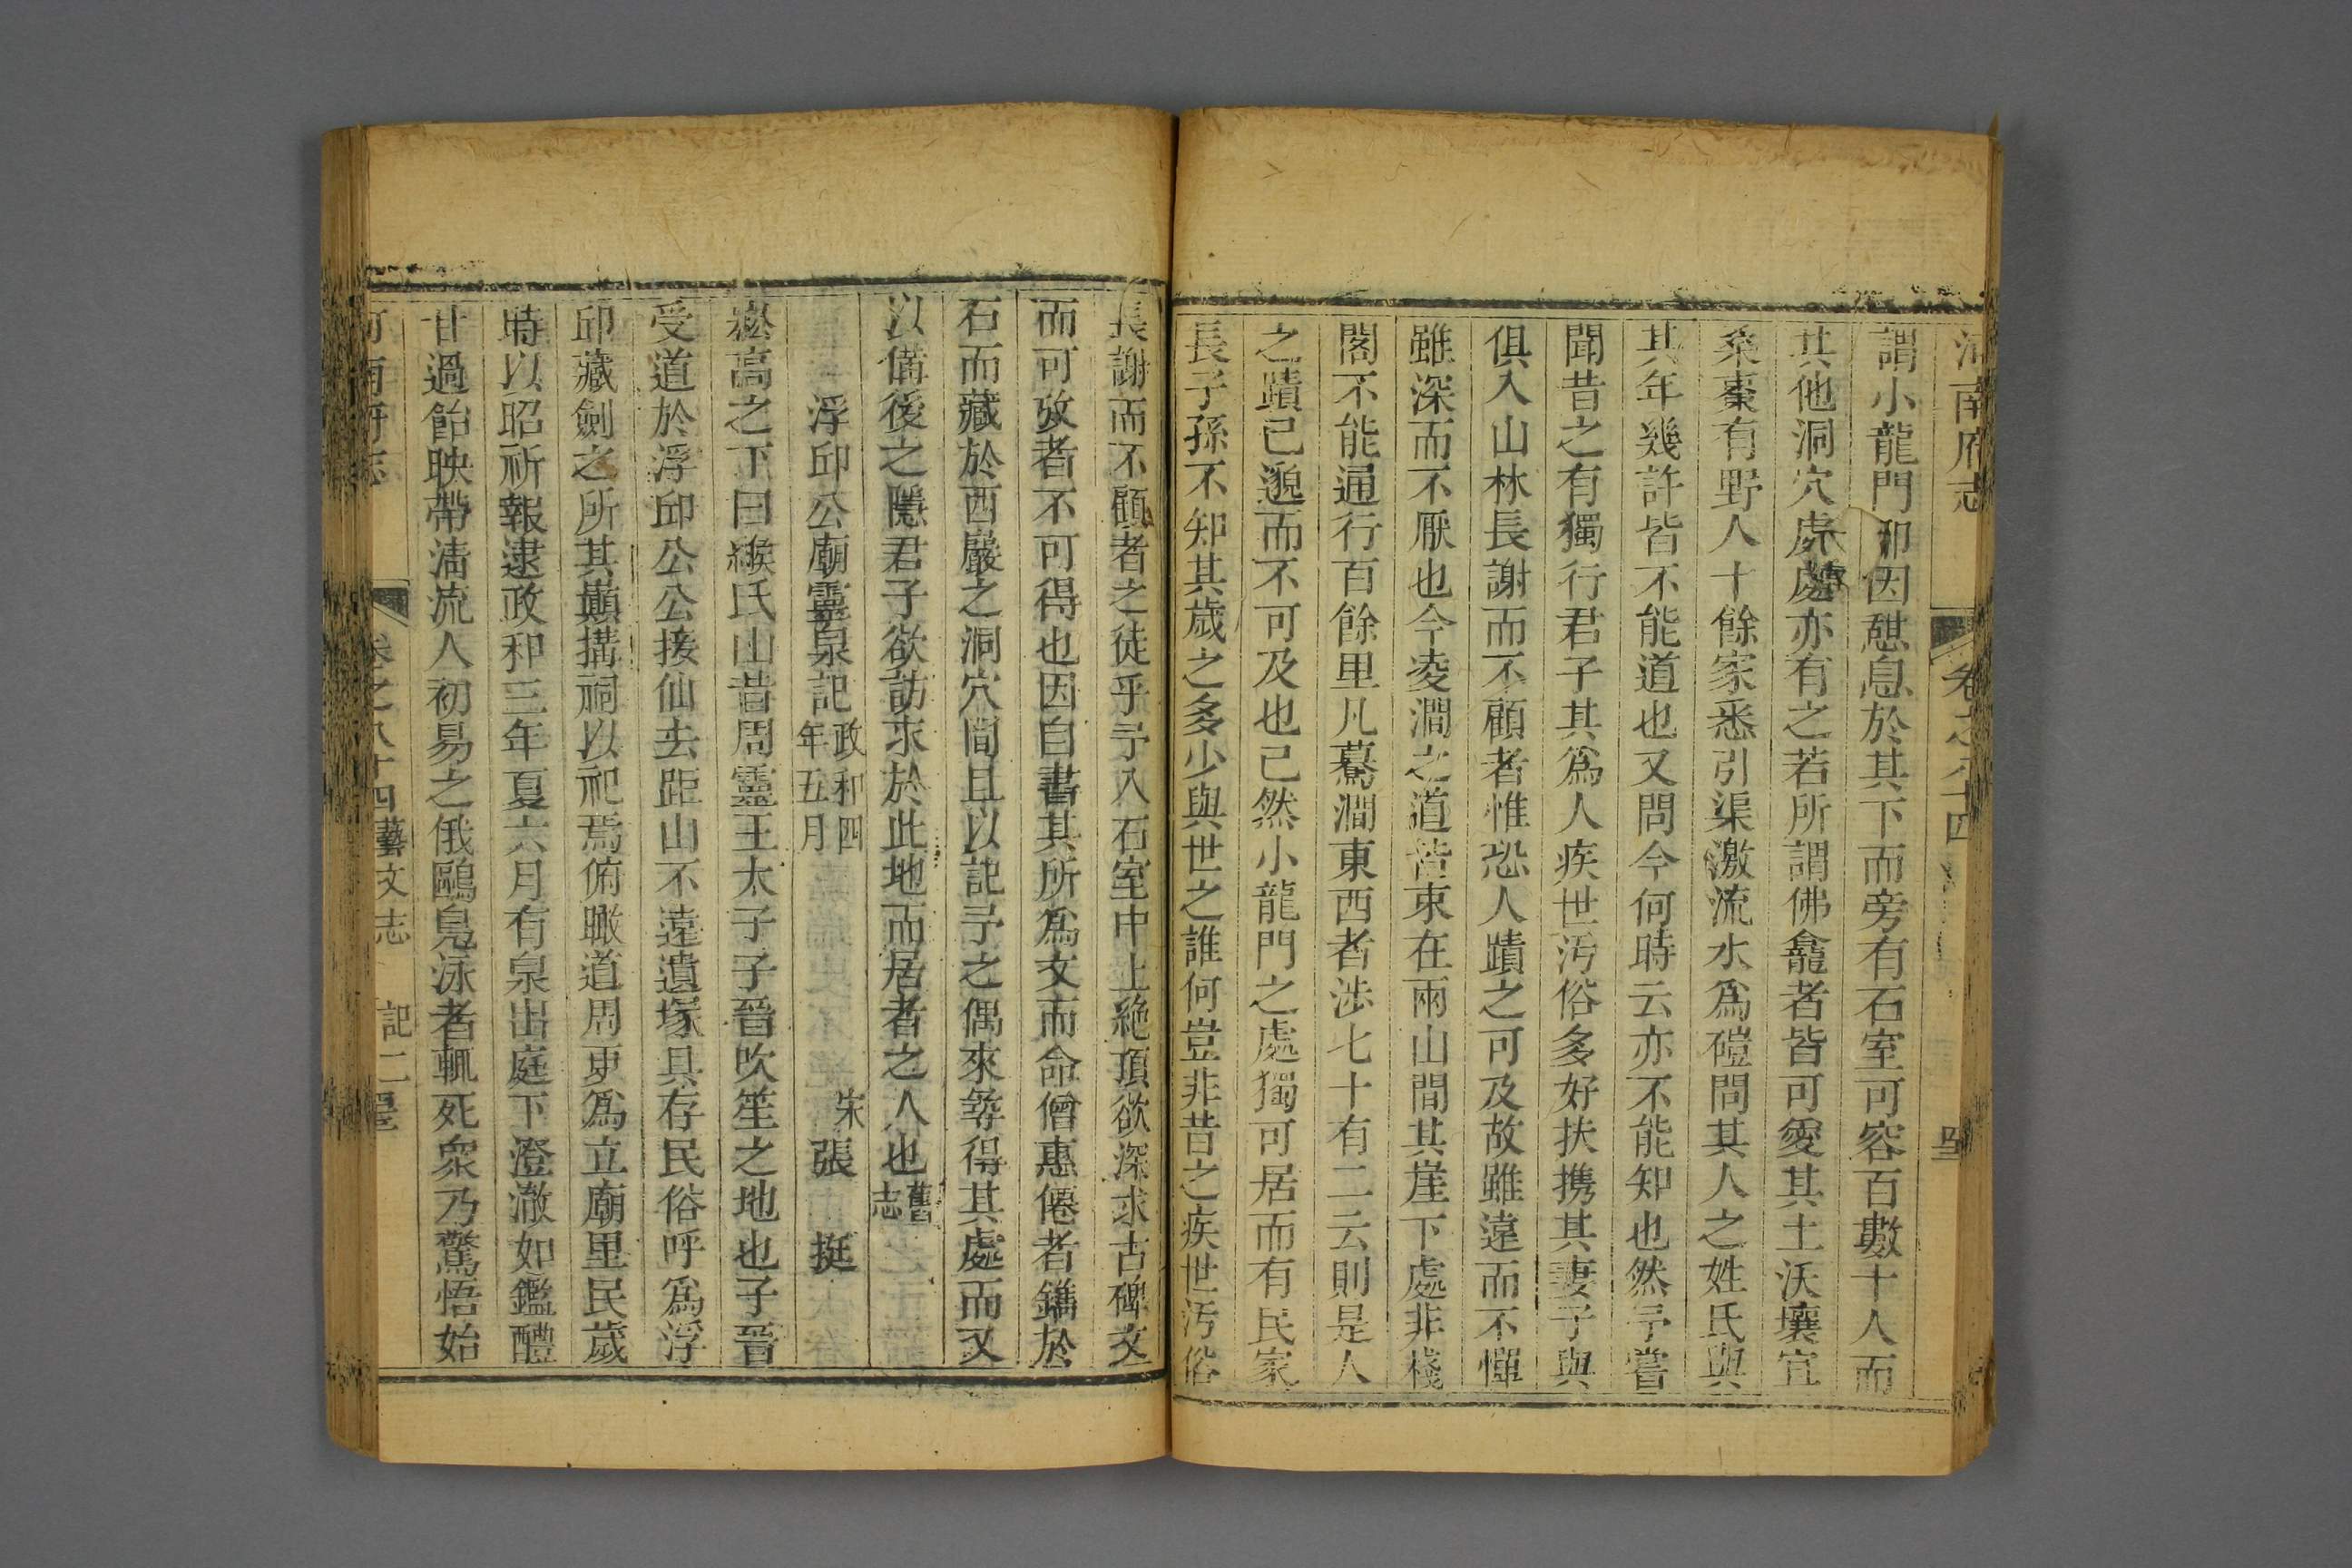 河南府志 卷之八十四
謂小龍門卽因憇息於其下而旁有石室可容百數十人而
其他洞穴處處亦有之若所謂佛龕者皆可愛其土沃壤宜
桑棗有野人十餘家悉引渠激流水爲磑問其人之姓氏與
其年幾許皆不能道也又問今何時云亦不能知也然予嘗
聞昔之有獨行君子其爲人疾世汚俗多好扶携其妻子與
俱入山林長謝而不顧者惟恐人蹟之可及故雖遠而不憚
雖深而不厭也今凌澗之道苦東在兩山間其崖下處非棧
閣不能通行百餘里凡驀澗東西者涉七十有二云則是人
之蹟已邈而不可及也已然小龍門之處獨可居而有民家
長子孫不知其歲之多少與世之誰何豈非昔之疾世汚俗
長謝而不顧者之徒乎予入石室中上絶頂欲深求古碑文
而可攷者不可得也因自書其所爲文而命僧惠僊者鐫於
石而藏於西巖之洞穴間且以記予之偶來筭得其處而又
以備後之隱君子欲訪求於此地而居者之人也舊志
浮邱公廟靈泉記政和四年五月 宋張 挺
崧高之下曰緱氏山昔周靈王太子子晉吹笙之地也子晉
受道於浮邱公公接仙去距山不遠遺塚具存民俗呼爲浮
邱藏劍之所其巔搆祠以祀焉俯瞰道周更爲立廟里民歲
時以昭祈報逮政和三年夏六月有泉出庭下澄澈如鑑醴
甘過飴映帶淸流人初易之俄鷗鳧泳者輒死衆乃驚悟始
河南府志 卷之八十四藝文志 記二